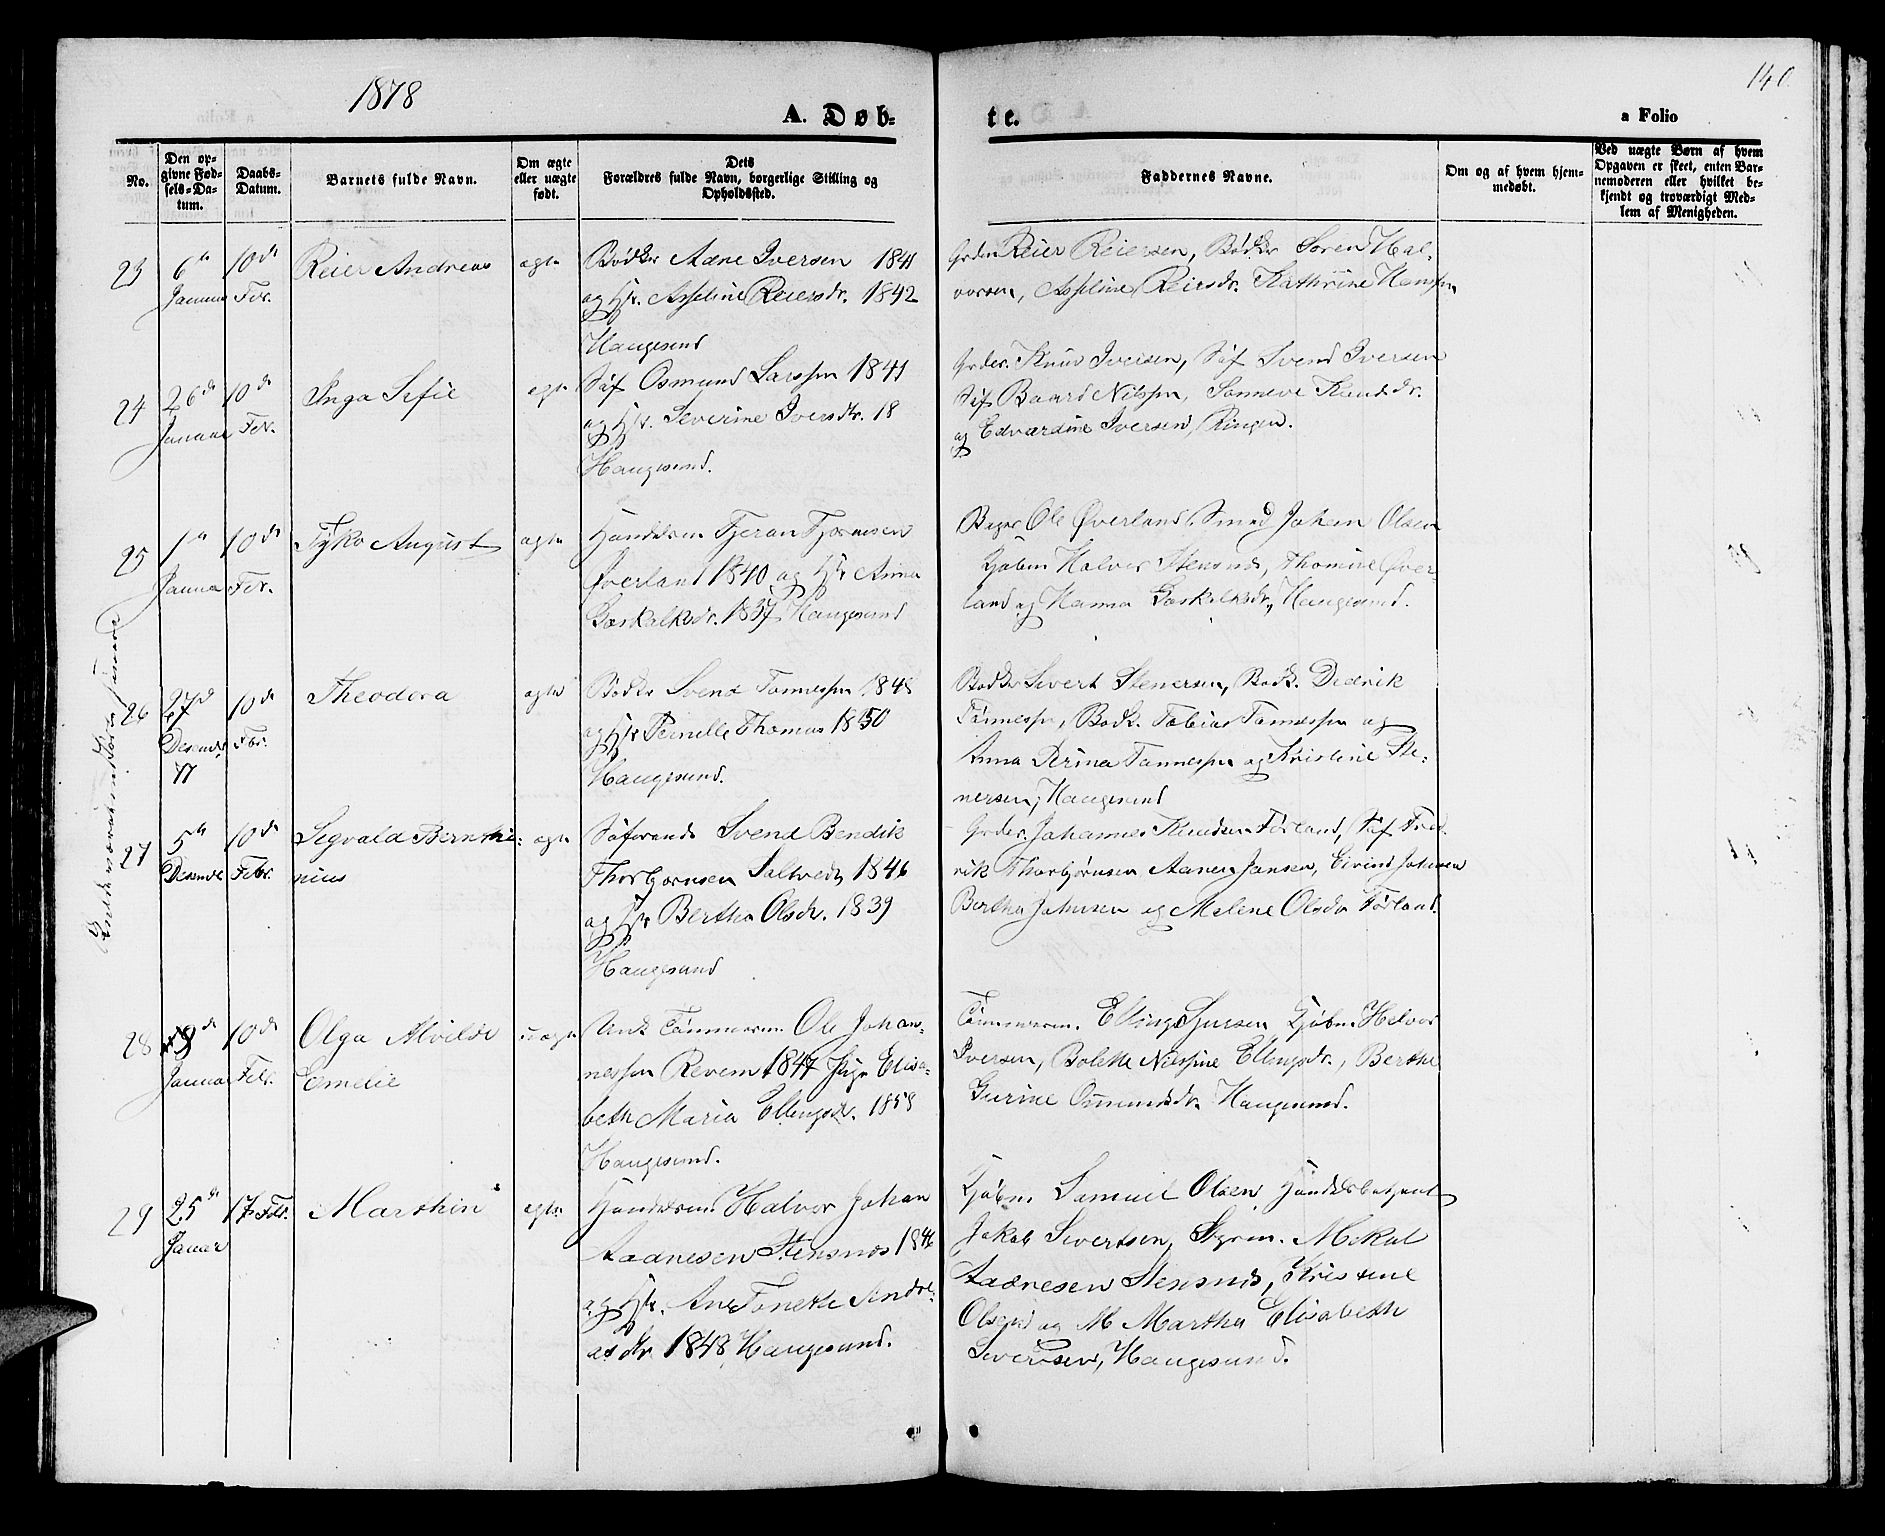 1878
140
A. Døb=
te.
a Folio
No.
Den op-
givne Fød-
sels-Da-
tum.
Daabs-
Datum.
Barnets fulde Navn.
Om ægte
eller uægte
født.
Dets
Forældres fulde Navn, borgerlige Stilling og
Opholdssted.
Faddernes Navne.
Om og af hvem hjem-
medøbt.
Ved uægte Børn af hvem
Opgaven er skeet, enten Bar-
nemoderen eller hvilket be-
kjendt og troværdigt Med-
lem af Menigheden.
23
6te
Januar
10de
Febr.
Reier Andreas
ægte
Bødker Aane Iversen 1841
og Hst. Asseline Reiersdr. 1842
Haugesund
Grden Reier Reiersen, Bødker Søren Hal-
vorsen, Asseline Reiersdr. Kathrine Hansen
24
26de
Januar
10de
Febr.
Inga Sofie
ægte
Søf Osmund Larssen 1841
og Hst. Severine Iversdtr. 18
Haugesund.
Grder. Knud Iversen, Søf Svend Iversen
Søf Baard Nilssen, Sønneve Knudsdr.
og Edvardine Iversen, Ringen.
25
1te
Januar
10de
Febr.
Tyko August
ægte
Handelsm Tjeran Tjernesen
Øverland 1840 og Hst Anna
Gaskalksdr. 1837 Haugesund
Bager Ole Øverland, Smed Johan Olsen
Kjøbm Halvor Stensnæs, Thomine Øver-
land og Hanna Gaskalksdr., Haugesund.
26
27de
Desember
77
10de
Febr.
Theodora
ægte
Bødker Svend Tønnessen 1848
og Hst Pernille Thomas 1850
Haugesund.
Bødker Sivert Stenersen, Bødk. Dedrik
Tønnessen, Bødk. Tobias Tønnessen og
Anna Serina Tønnessen og Kristine Ste-
nersen, Haugesund
27
5te
Desember
10de
Febr.
Segvald Bernthi-
nius
ægte
Søfarende Svend Bendik
Thorbjørnsen Saltveds 1846
og Hst Bertha Olsdr. 1839
Haugesund
Grder. Johannes Knudsen Førland, Søf Fred-
rik Thorbjørnsen Aanen Jansen, Eivind Johnsen
Bertha Johnsen og Malene Olsdr Førland.
28
Januar
10de
Febr.
Olga Alvilde
Emelie
uægte
Unk Tømmerm. Ole Johan-
nessen Revem 1847 Pige Elisa-
beth Maria Ellingsdr. 1858
Haugesund.
Tømmerm. Elling Sjursen Kjøbm Halvor
Iversen, Bolette Nilssine Ellingsdr., Berthe
Gurine Osmundsdr. Haugesund.
29
25de
Januar
17 Febr.
Marthin
ægte
Handelsm. Halvor Johan
Aadnesen Stensnæs 1846
og Hst. Ane Tonethe Andre-
asdtr 1848, Haugesund.
Kjøbm. Samuel Olsen Handelsbetjent
Jakob Sivertsen, Styrm. Mikal
Aadnesen Stensnæs, Kristine
Olsen og M Martha Elisabeth
Sivertsen, Haugesund.